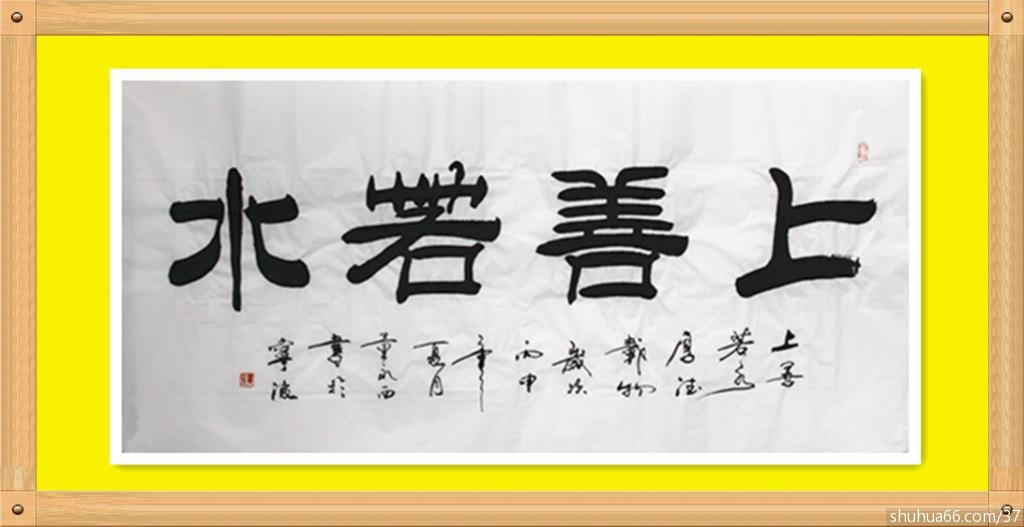 上善若水
上善
若水
厚德
載物
歲次
丙申
年
夏月
西
書於
寧波
shuhua66.com/37